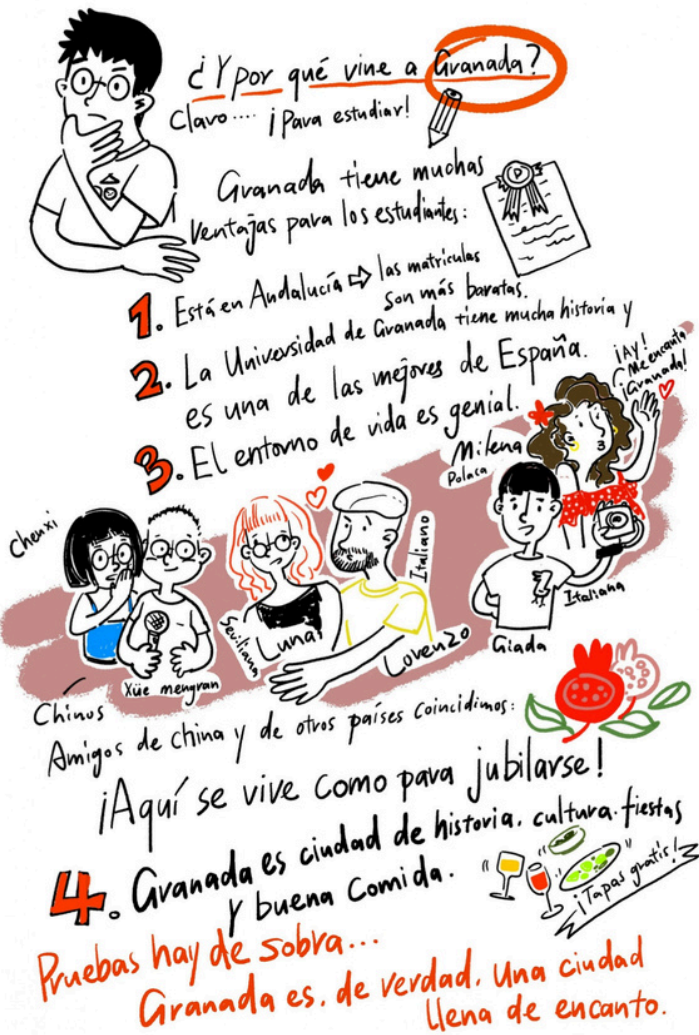 ¿Y por qué vine a Granada?
Claro.... ¡Para estudiar!
Granada tiene muchas
ventajas para los estudiantes:
1. Está en Andalucía ⇨ las matrículas
son más baratas.
2. La Universidad de Granada tiene mucha historia y
es una de las mejores de España.
3. El entorno de vida es genial.
¡AY!
Me encanta
¡Granada!
Milena
Polaca
Chenxi
Xüe mengran
Chinos
Sevillana
Luna
Italiano
Lorenzo
Giada
Italiana
Amigos de china y de otros países coincidimos:
¡Aquí se vive como para jubilarse!
4. Granada es ciudad de historia, cultura, fiestas
y buena comida.
¡Tapas gratis!
Pruebas hay de sobra...
Granada es, de verdad, una ciudad
llena de encanto.